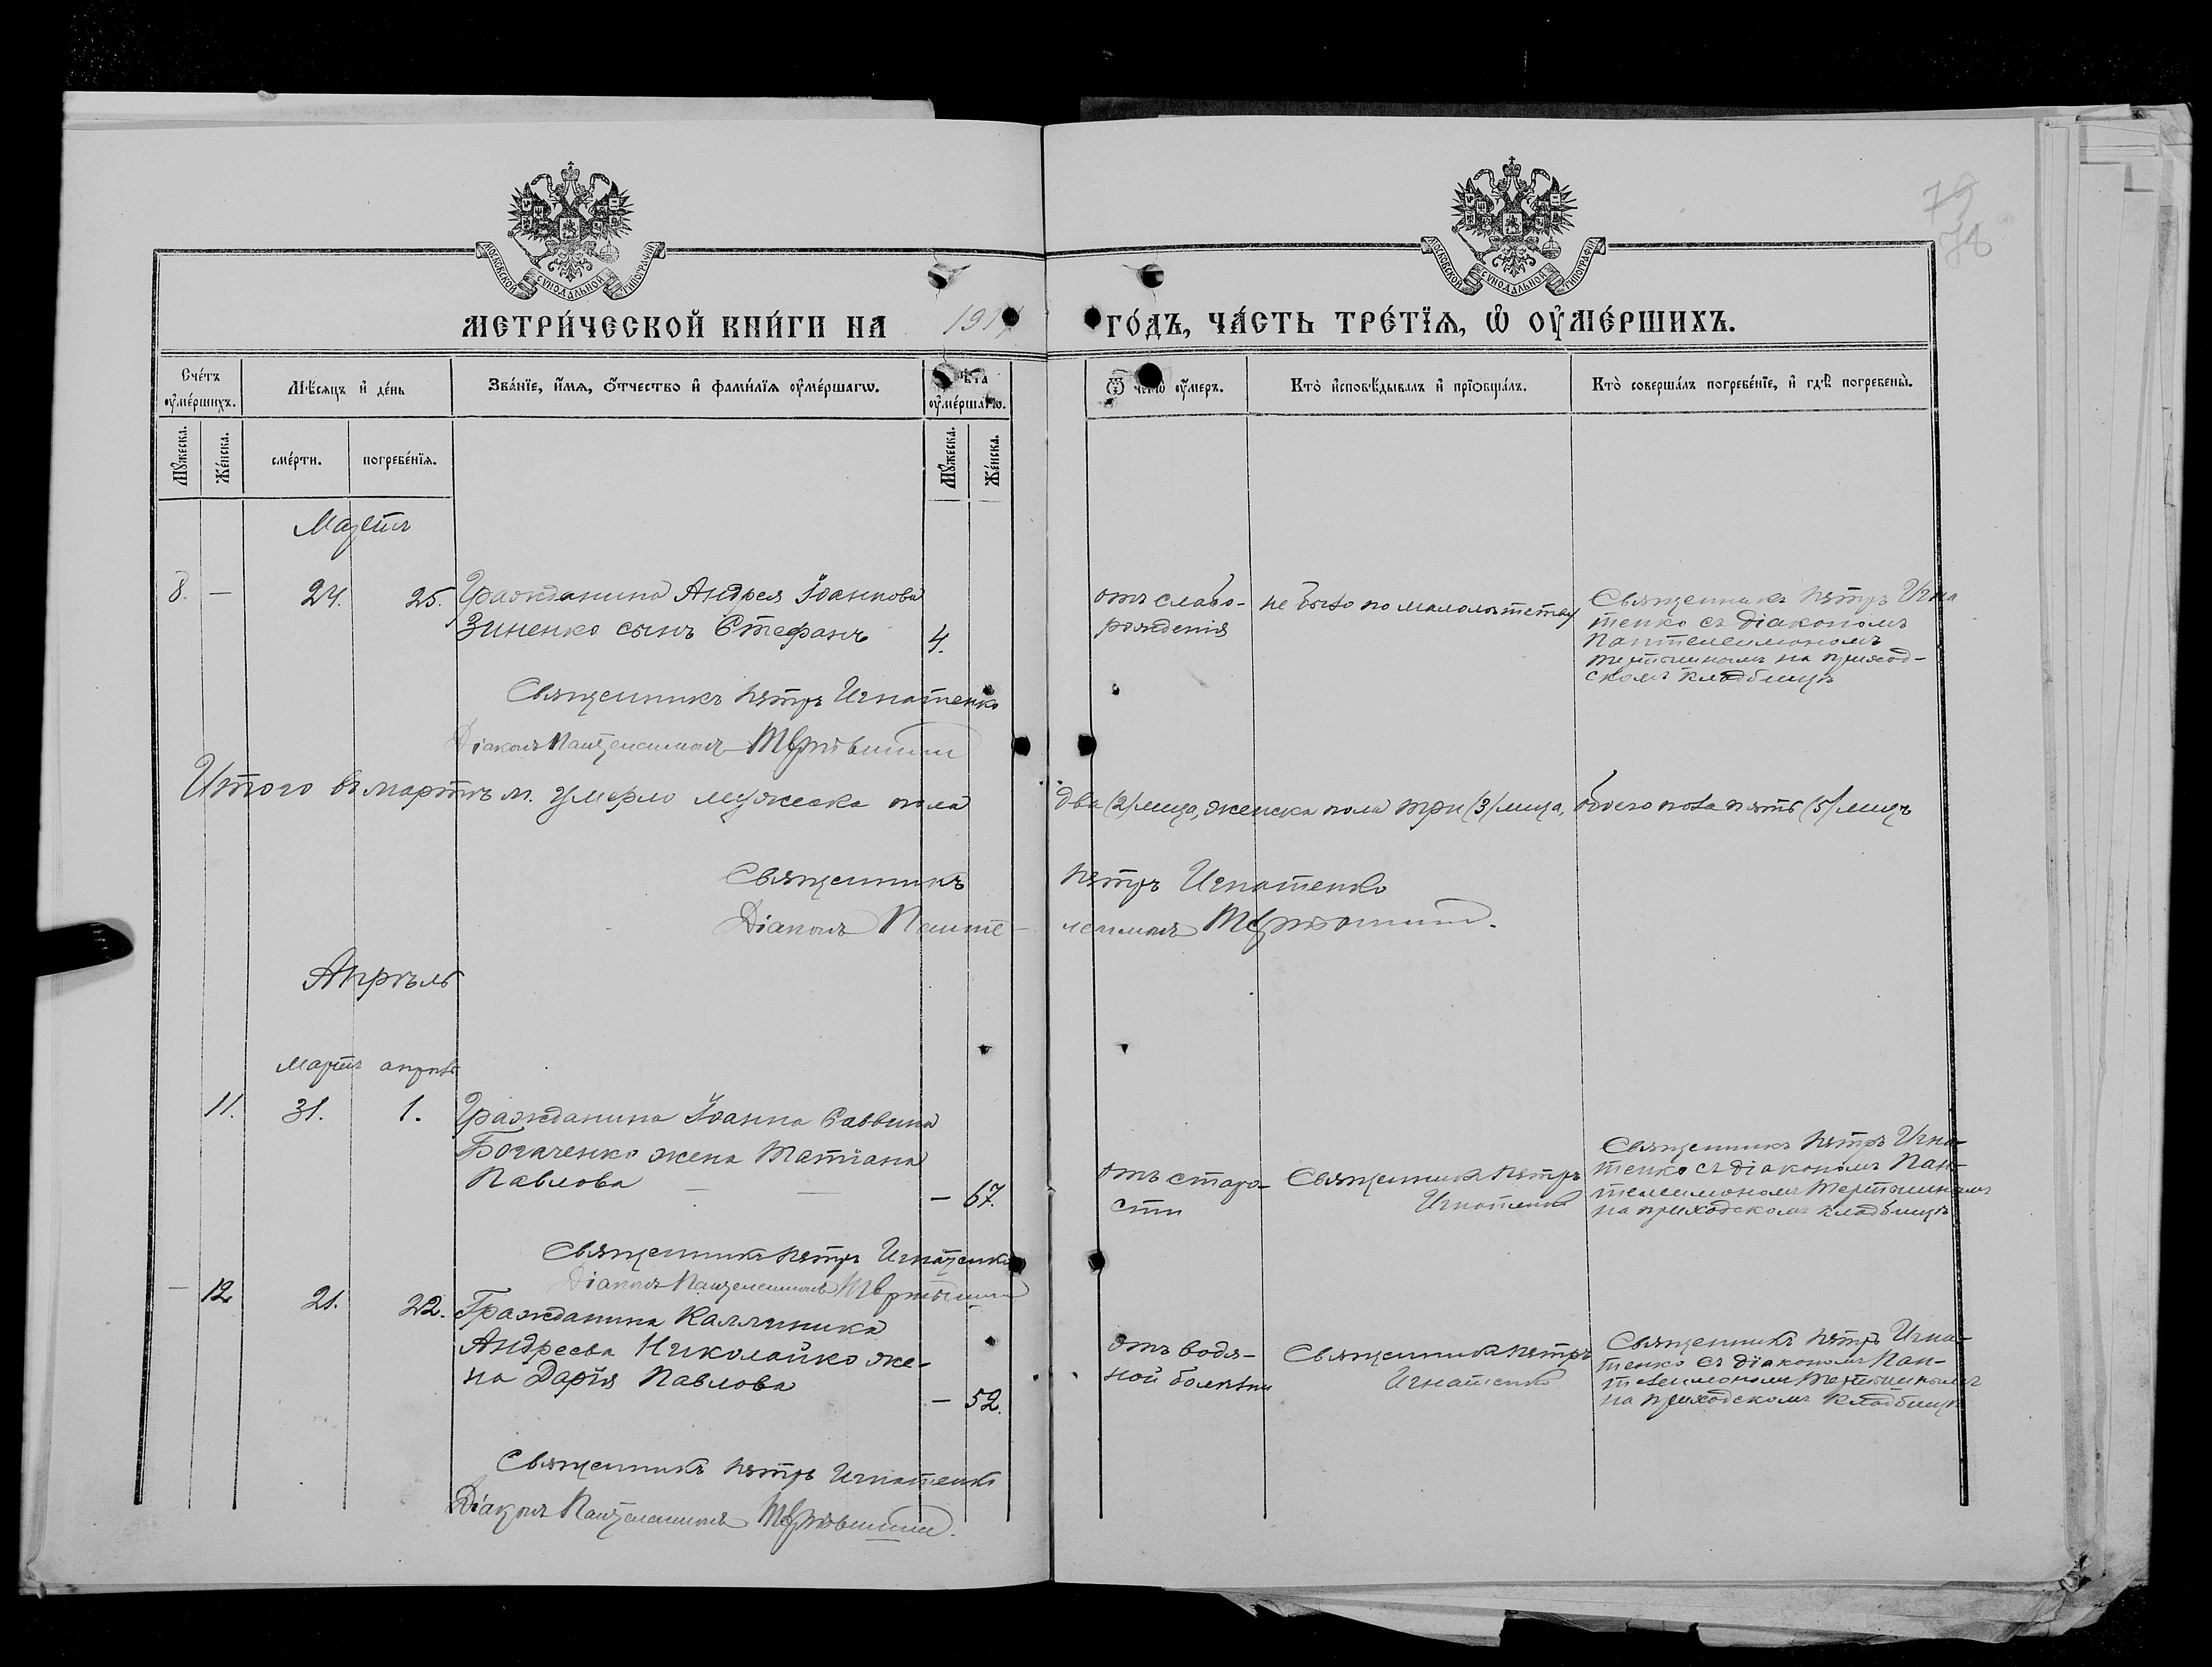 79
78
МОСКОВСКОЙ СѴНОДАЛЬНОЙ ТИПОГРАФІИ
МОСКОВСКОЙ СѴНОДАЛЬНОЙ ТИПОГРАФІИ
МЕТРИ́ЧЕСКОЙ КНИ́ГИ НА 191
ГО́ДЪ, ЧА́СТЬ ТРЕ́ТЇѦ, Ѽ ОУМЕ́РШИХЪ.
Сче́тъ оумершихъ.
Мѣсяцъ и де́нь
Зва́нїе, и҆мѧ, ѻ҆́тчество и҆ фами́лїѧ оуме́ршагѡ.
Лѣта оуме́ршагѡ.
Ѿ чегѡ̀ оумеръ.
Кто̀ и҆сповѣдывалъ и҆ прїѡбща́лъ.
Кто̀ соверша́лъ погребе́нїе, и҆ гдѣ̀ погребены̀.
Мꙋжеска.
Же́нска.
сме́рти.
погребе́нїѧ.
Мꙋжеска.
Же́нска.
Мартъ
8. — 24. 25. Гражданина Андрея Іоаннова
Зиненко сынъ Стефанъ 4.
отъ слабо-
рожденія
не было по малолѣтству
Священникъ Петръ Игна
тенко съ діакономъ
Пантелеимономъ
Тертышнымъ на приход-
скомъ кладбищѣ
Священникъ Петръ Игнатенко
Діаконъ Пантелеимонъ Тертышный
Итого въ мартѣ м. умерло мужеска пола два (2) лица, женска пола три (3) лица, обоего пола пять (5) лицъ
Священникъ Петръ Игнатенко
Діаконъ Панте-леимонъ Тертышный.
Апрѣль
Мартъ апрѣль
11. 31. 1. Гражданина Іоанна Саввина
Богаченко жена Татіана
Павлова — 67.
отъ старо-
сти
Священникъ Петръ
Игнатенко
Священникъ Петръ Игна-
тенко съ діакономъ Пан-
телеимономъ Тертышнымъ
на приходскомъ кладбищѣ
Священникъ Петръ Игнатенко
Діаконъ Пантелеимонъ Тертышный
— 12. 21. 22. Гражданина Каллиника
Андреева Николайко же-
на Дарія Павлова — 52.
отъ водя-
ной болѣзни
Священникъ Петръ
Игнатенко
Священникъ Петръ Игна-
тенко съ діакономъ Пан-
телеимономъ Тертышнымъ
на приходскомъ кладбищѣ
Священникъ Петръ Игнатенко
Діаконъ Пантелеимонъ Тертышный.